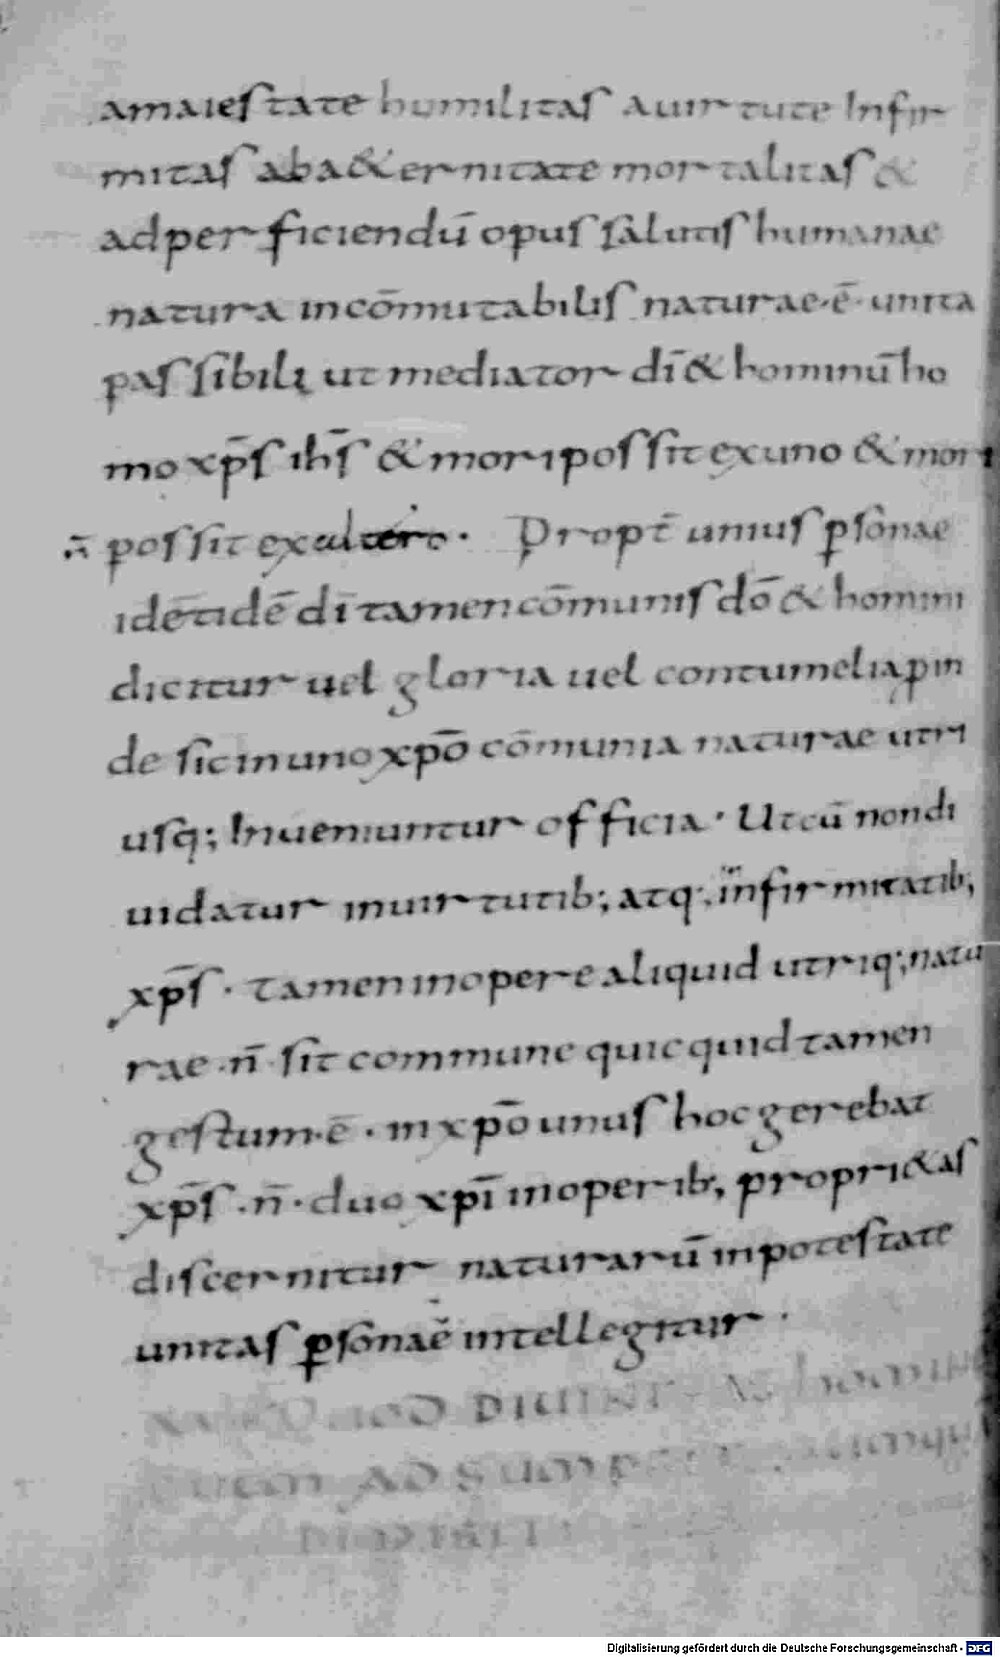 amaiestate humilitas auirtute Infir
mitas aba&ernitate mortalitas &
adperficiendū opus salutis humanae
natura incōmutabilis naturae·ē·unita
passibili ut mediator dī & hominū ho
mo xp̄s ihs̄ & mori possit exuno & mori
n̄ possit exaltero· Propt̄ unius p̱sonae
idētidē dī tamen cōmunis dō & homini
dicitur uel gloria uel contumelia p̱in
de sic inuno xpō cōmunia naturae utri
usq; Inueniuntur officia· Utcū nondi
uidatur inuirtutib; atq; infirmitatib;
xp̄s· tamen inopere aliquid utriq; natu
rae·n̄·sit commune quicquid tamen
gestum·ē· in xpō unus hoc gerebat
xp̄s·n̄·duo xpī inoperib; propri&as
discernitur naturarū inpotestate
unitas p̱sonae intellegitur·
QUOD DIUINITAS homin
AD
Digitalisierung gefördert durch die Deutsche Forschungsgemeinschaft - DFG